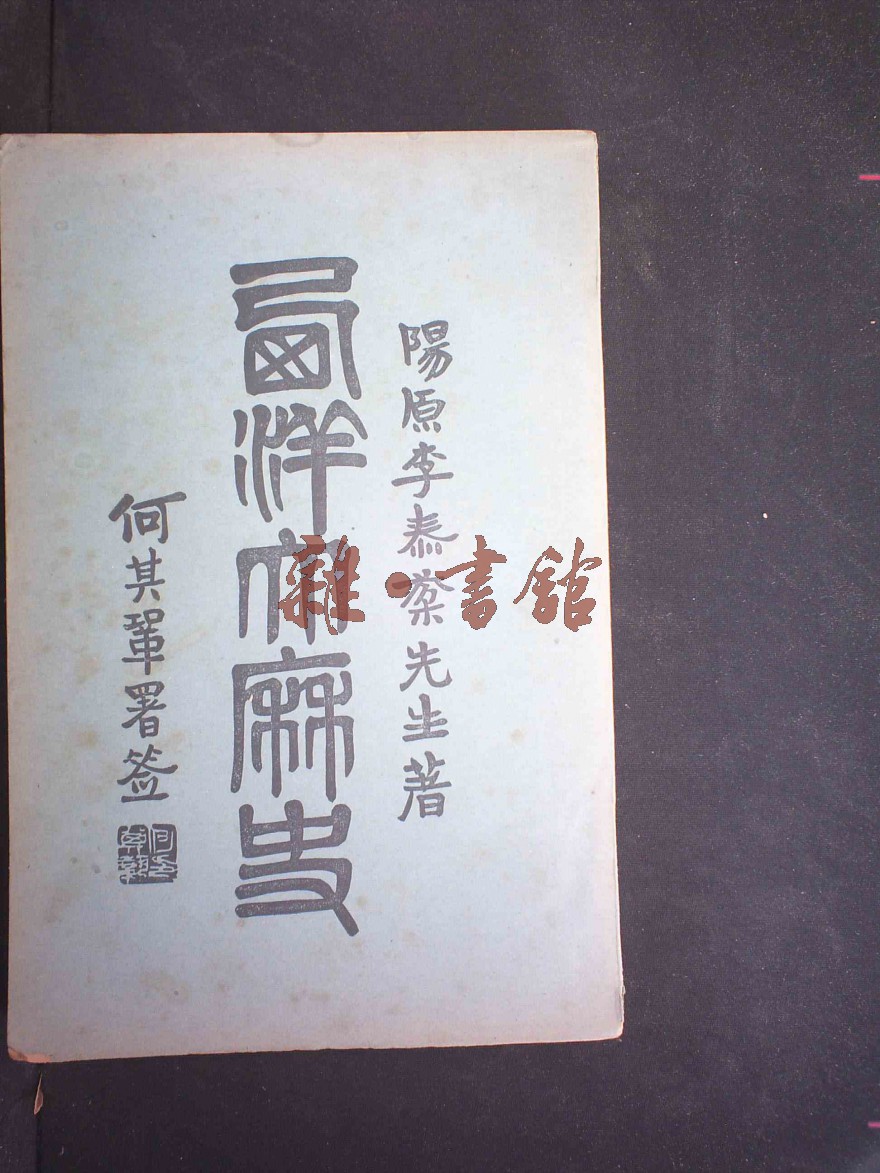 陽原李泰棻先生著
西洋大厤史
何其鞏署签
雜·書館